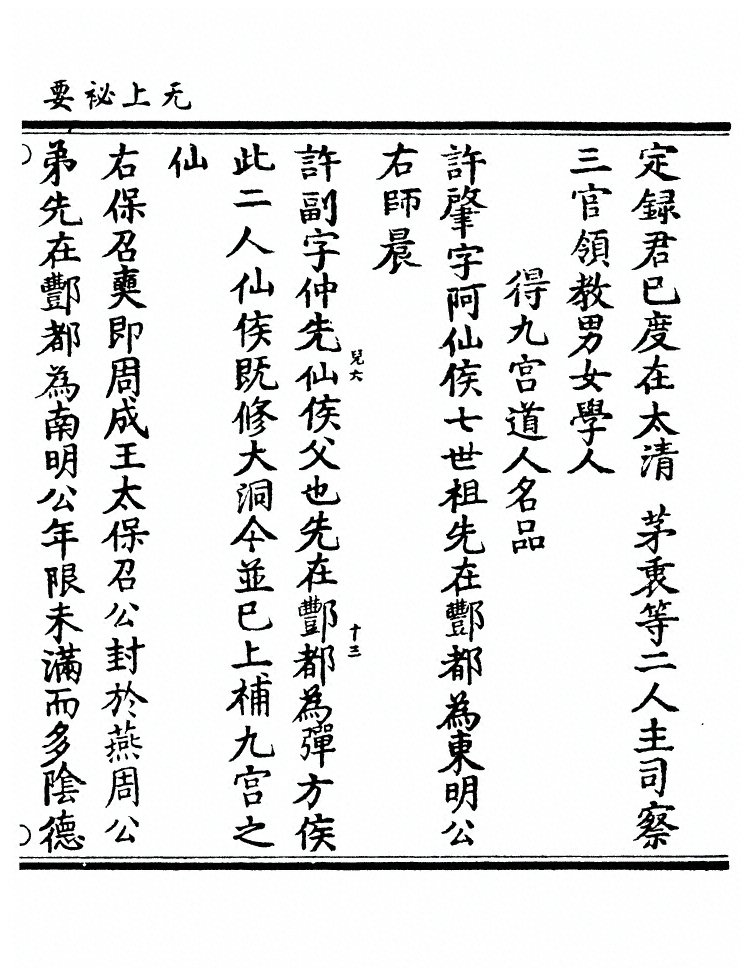 无上祕要
定録君巳度在太清　茅衷等二人主司察
三官領教男女學人
得九宮道人名品
許肇字阿仙侯七世祖先在酆都為東明公
右師晨
許副字仲先仙侯父也先在酆都為彈方侯
兒六
十三
此二人仙侯既修大洞今並巳上補九宮之
仙
右保召奭即周成王太保召公封於燕周公
弟先在酆都為南明公年限未滿而多陰德